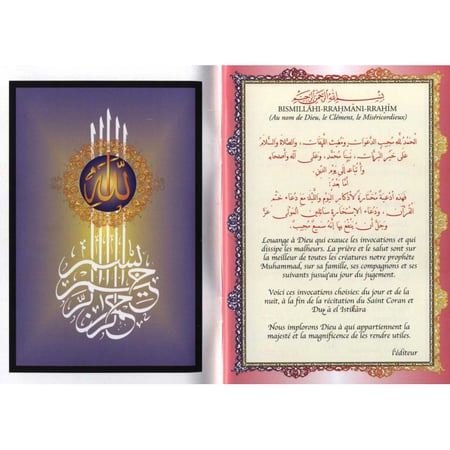 الله
بسم
الرحمن
الرحيم
بسم الله الرحمن الرحيم
BISMILLÂHI-RRAHMÂNI-RRAHÎM
(Au nom de Dieu, le Clément, le Miséricordieux)
الحَمْدُ لله مُجِيبِ الدَّعَوَاتِ وَمُغِيثِ اللَّهَفَاتِ، والصَّلاَةُ والسَّلاَمُ
عَلَى خَيْرِ البَرِيَّاتِ، نَبِيِّنَا مُحَمَّد، وعَلَى آلِهِ وأَصْحَابِهِ
وَأَتْبَاعِهِ إِلَى يَوْمِ الدِّينِ
أَمَّا بَعْدُ:
فَهَذِهِ أَدْعِيَةٌ مُخْتَارَةٌ لأَذْكَارِ اليَوْمِ واللَّيْلَةِ مَعَ دُعَاءِ خَتْمِ
القُرْآنِ، ودُعَاءِ الاِسْتِخَارَةِ سَائِلِينَ المَوْلَى عَزَّ
وَجَلَّ أَنْ يَنْفَعَ بِهَا إِنَّهُ سَمِيعٌ مُجِيبٌ.
Louange à Dieu qui exauce les invocations et qui
dissipe les malheurs. La prière et le salut sont sur
le meilleur de toutes les créatures notre prophète
Muhammad, sur sa famille, ses compagnons et ses
suivants jusqu'au jour du jugement.
Voici ces invocations choisies: du jour et de la
nuit, à la fin de la récitation du Saint Coran et
Du'a el Istikâra
Nous implorons Dieu à qui appartiennent la
majesté et la magnificence de les rendre utiles.
l'éditeur